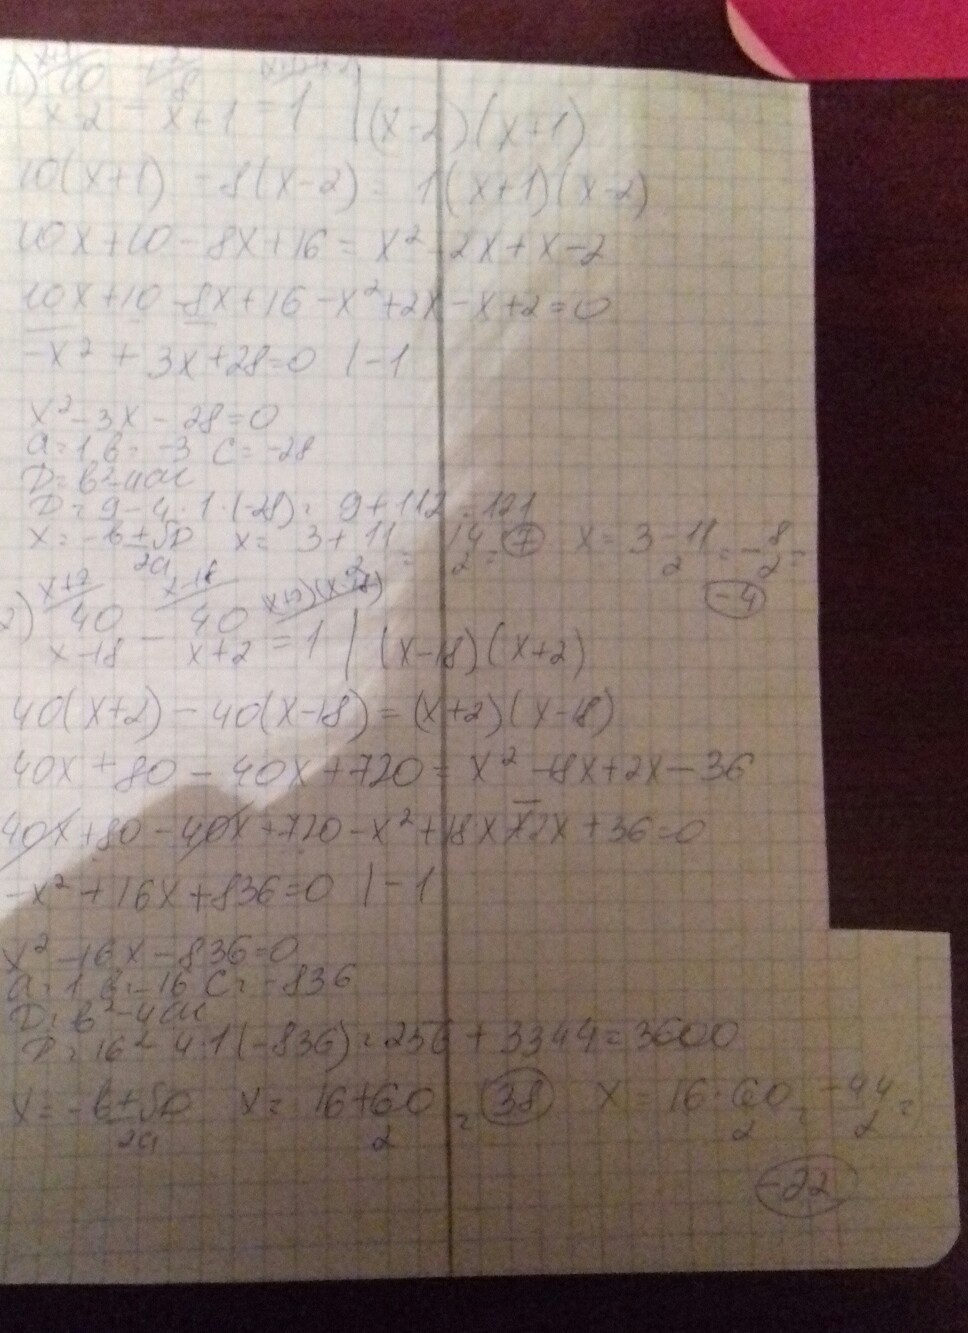 1) x+1/ 10/(x-2) - x-2/ 8/(x+1) = 1 | (x-2)(x+1)
10(x+1) - 8(x-2) = 1(x+1)(x-2)
10x+10-8x+16 = x²-2x+x-2
10x+10-8x+16-x²+2x-x+2=0
-x²+3x+28=0 | -1
x²-3x-28=0
a=1 b=-3 c=-28
D=b²-4ac
D=9-4·1·(-28)=9+112=121
x=(-b±√D)/2a x=(3+11)/2=14/2=7 x=(3-11)/2=-8/2=
-4
2) x+2/ 40/(x-18) - x-18/ 40/(x+2) = (x+2)(x-18)/ 1 | (x-18)(x+2)
40(x+2)-40(x-18)=(x+2)(x-18)
40x+80-40x+720=x²-18x+2x-36
40x+80-40x+720-x²+18x-2x+36=0
-x²+16x+836=0 | -1
x²-16x-836=0
a=1 b=-16 c=-836
D=b²-4ac
D=16²-4·1(-836)=256+3344=3600
x=(-b±√D)/2a x=(16+60)/2=38 x=(16-60)/2=-44/2=
-22